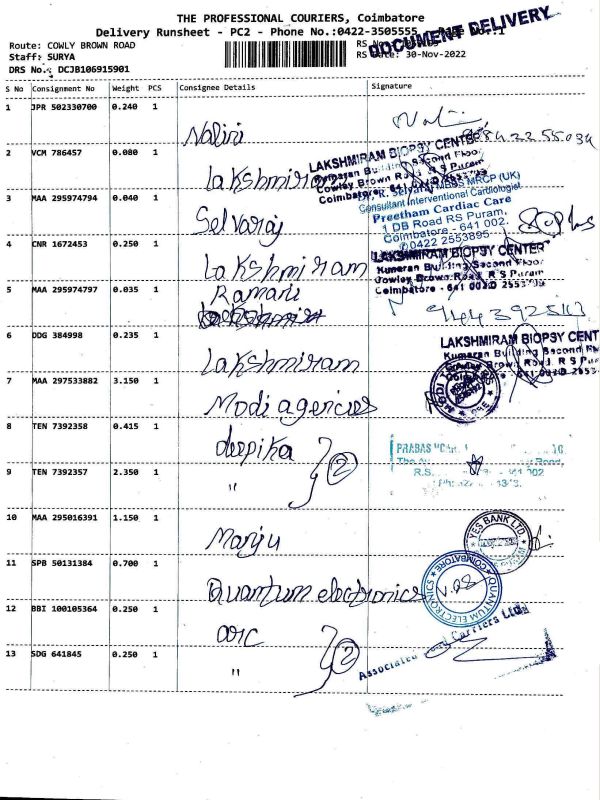 THE PROFESSIONAL COURIERS, Coimbatore
Delivery Runsheet - PC2 - Phone No.:0422-3505555
DOCUMENT DELIVERY
Route: COWLY BROWN ROAD
Staff: SURYA
RS Date: 30-Nov-2022
DRS No.: DCJB106915901
S No Consignment No Weight PCS Consignee Details Signature
1 JPR 502330700 0.240 1 Nalini
2 VCM 786457 0.080 1 Lakshmiram
LAKSHMIRAM BIOPSY CENTER
Kumaran Building Second Floor
Cowley Brown Road, R S Puram
Coimbatore - 641 002
3 MAA 295974794 0.040 1 Selvaraj
MBBS MRCP (UK)
Consultant Interventional Cardiologist
Preetham Cardiac Care
1 DB Road RS Puram,
Coimbatore - 641 002.
0422 2553895
4 CNR 1672453 0.250 1 Lakshmiram
LAKSHMIRAM BIOPSY CENTER
Kumaran Building Second Floor
Cowley Brown Road, R S Puram
Coimbatore - 641 002
5 MAA 295974797 0.035 1 Ramani
6 DDG 384998 0.235 1 Lakshmiram
LAKSHMIRAM BIOPSY CENT
Kumaran Building Second Floor
7 MAA 297533882 3.150 1 Modi agencies
8 TEN 7392358 0.415 1 deepika
2
9 TEN 7392357 2.350 1 "
10 MAA 295016391 1.150 1 Manju
YES BANK LTD.
11 SPB 50131384 0.700 1 Quantum electronics
QUANTUM ELECTRONICS
COIMBATORE
12 BBI 100105364 0.250 1 arc
2
13 SDG 641845 0.250 1 "
Associated Road Carriers Ltd